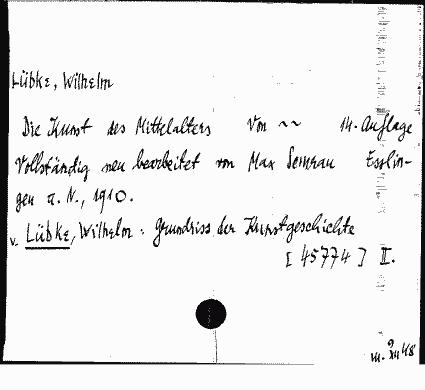 Lübke, Wilhelm
Die Kunst des Mittelalters Von ~~ 14. Auflage
Vollständig neu bearbeitet von Max Semrau Esslin-
gen a. N., 1910.
v. Lübke, Wilhelm: Grundriss der Kunstgeschichte
[45774] II.